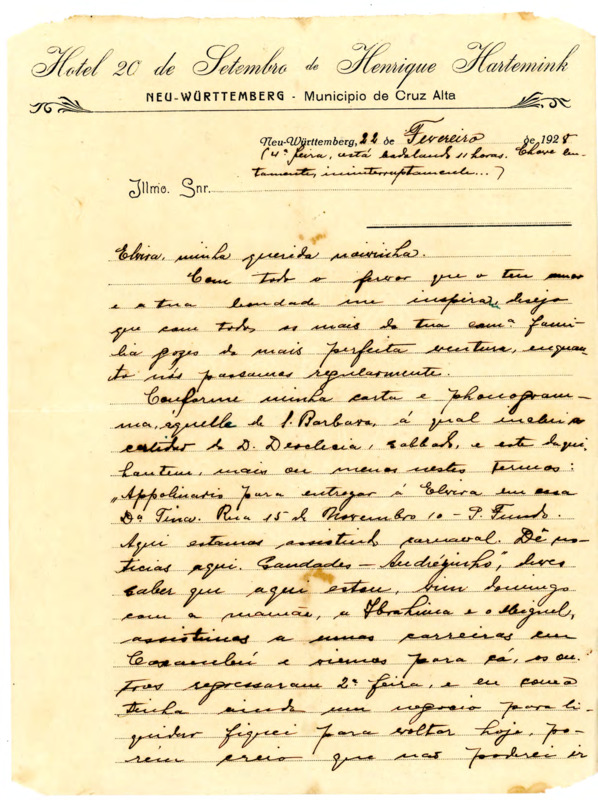 Hotel 20 de Setembro de Henrique Hartemink
NEU-WÜRTTEMBERG - Municipio de Cruz Alta
Neu-Württemberg, 22 de Fevereiro de 1928
(4ª feira, está badalando 11 horas. Chove len-
tamente, ininterruptamente...)
Illmo. Snr.
Elvira, minha querida noivinha.
Com todo o fervor que o teu amor
e a tua bondade me inspira, desejo
que com todos os mais da tua comª fami-
lia gozes da mais perfeita ventura, enquan-
to nós passamos regularmente.
Conforme minha carta e phonogram-
ma, aquella de S. Barbara, á qual inclui a
certidão da D. Deoclecia, sabbado, e este daqui,
hontem, mais ou menos nestes termos:
"Appolinario para entregar á Elvira em casa
Dª Tina. Rua 15 de Novembro 10 - P. Fundo.
Aqui estamos assistindo carnaval. Dê no-
ticias aqui. Saudades - Andrézinho", deves
saber que aqui estou, vim domingo
com a mamãe, a Ibrahima e o Miguel,
assistimos a umas carreiras em
Caxambú e viemos para cá, os ou-
tros regressaram 2ª feira, e eu como
tinha ainda um negocio para li-
quidar fiquei para voltar hoje, po-
rém creio que não poderei ir